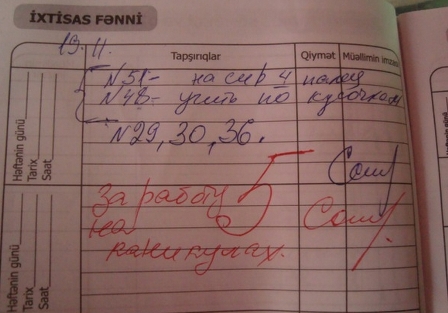 İXTİSAS FƏNNİ
19.11.
Tapşırıqlar
Qiymət
Müəllimin imzası
Həftənin günü
Tarix
Saat
N51- на стр 4 палец
N48- учить по кусочкам
N29, 30, 36.
За работу 5
на
каникулах.
Həftənin günü
Tarix
Saat